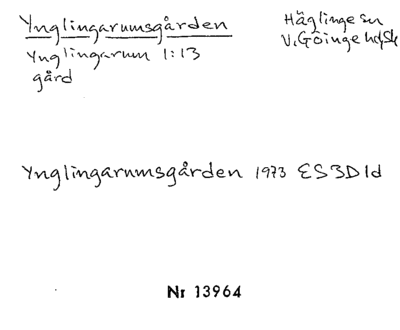 Ynglingarumsgården
Häglinge sn
Ynglingarum 1:13
V. Göinge hd, Sk
gård
Ynglingarumsgården 1973 ES3D1d
Nr 13964